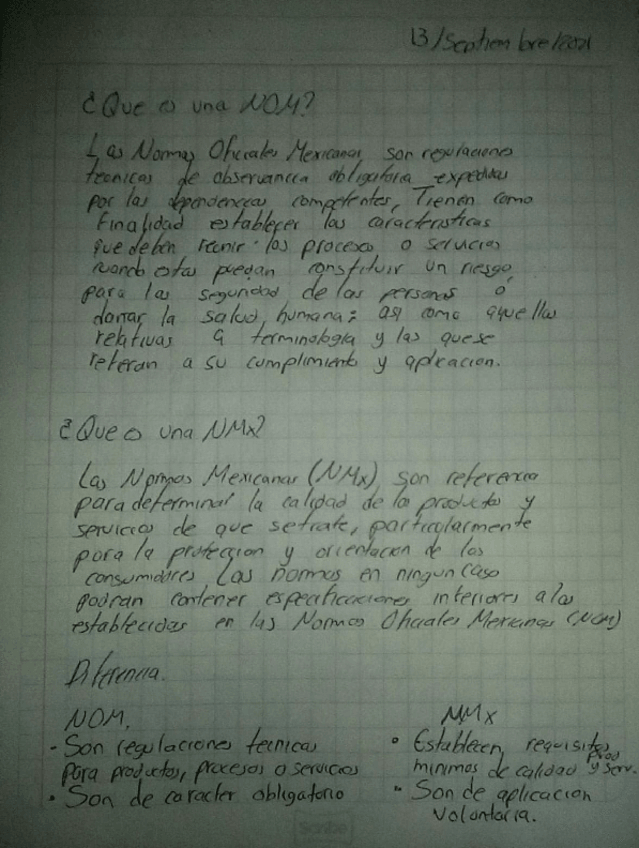 13/Septiembre/2021
¿Que es una NOM?
Las Normas Oficiales Mexicanas son regulaciones
tecnicas de observancia obligatoria expedidas
por las dependencias competentes, Tienen como
finalidad establecer las caracteristicas
que deben reunir los procesos o servicios
cuando estos puedan constituir un riesgo
para la seguridad de las personas o
dañar la salud humana; asi como aquellas
relativas a terminologia y las que se
refieran a su cumplimiento y aplicacion.
¿Que es una NMX?
Las Normas Mexicanas (NMX) son referencia
para determinar la calidad de los productos y
servicios de que se trate, particularmente
para la proteccion y orientacion de los
consumidores Las normas en ningun caso
podran contener especificaciones inferiores a las
establecidas en las Normas Oficiales Mexicanas (NOM)
Diferencia.
NOM,
- Son regulaciones tecnicas
para productos, procesos o servicios
• Son de caracter obligatorio
NMX
• Establecen requisitos
minimos de calidad prod y serv.
• Son de aplicacion
voluntaria.
Scribe